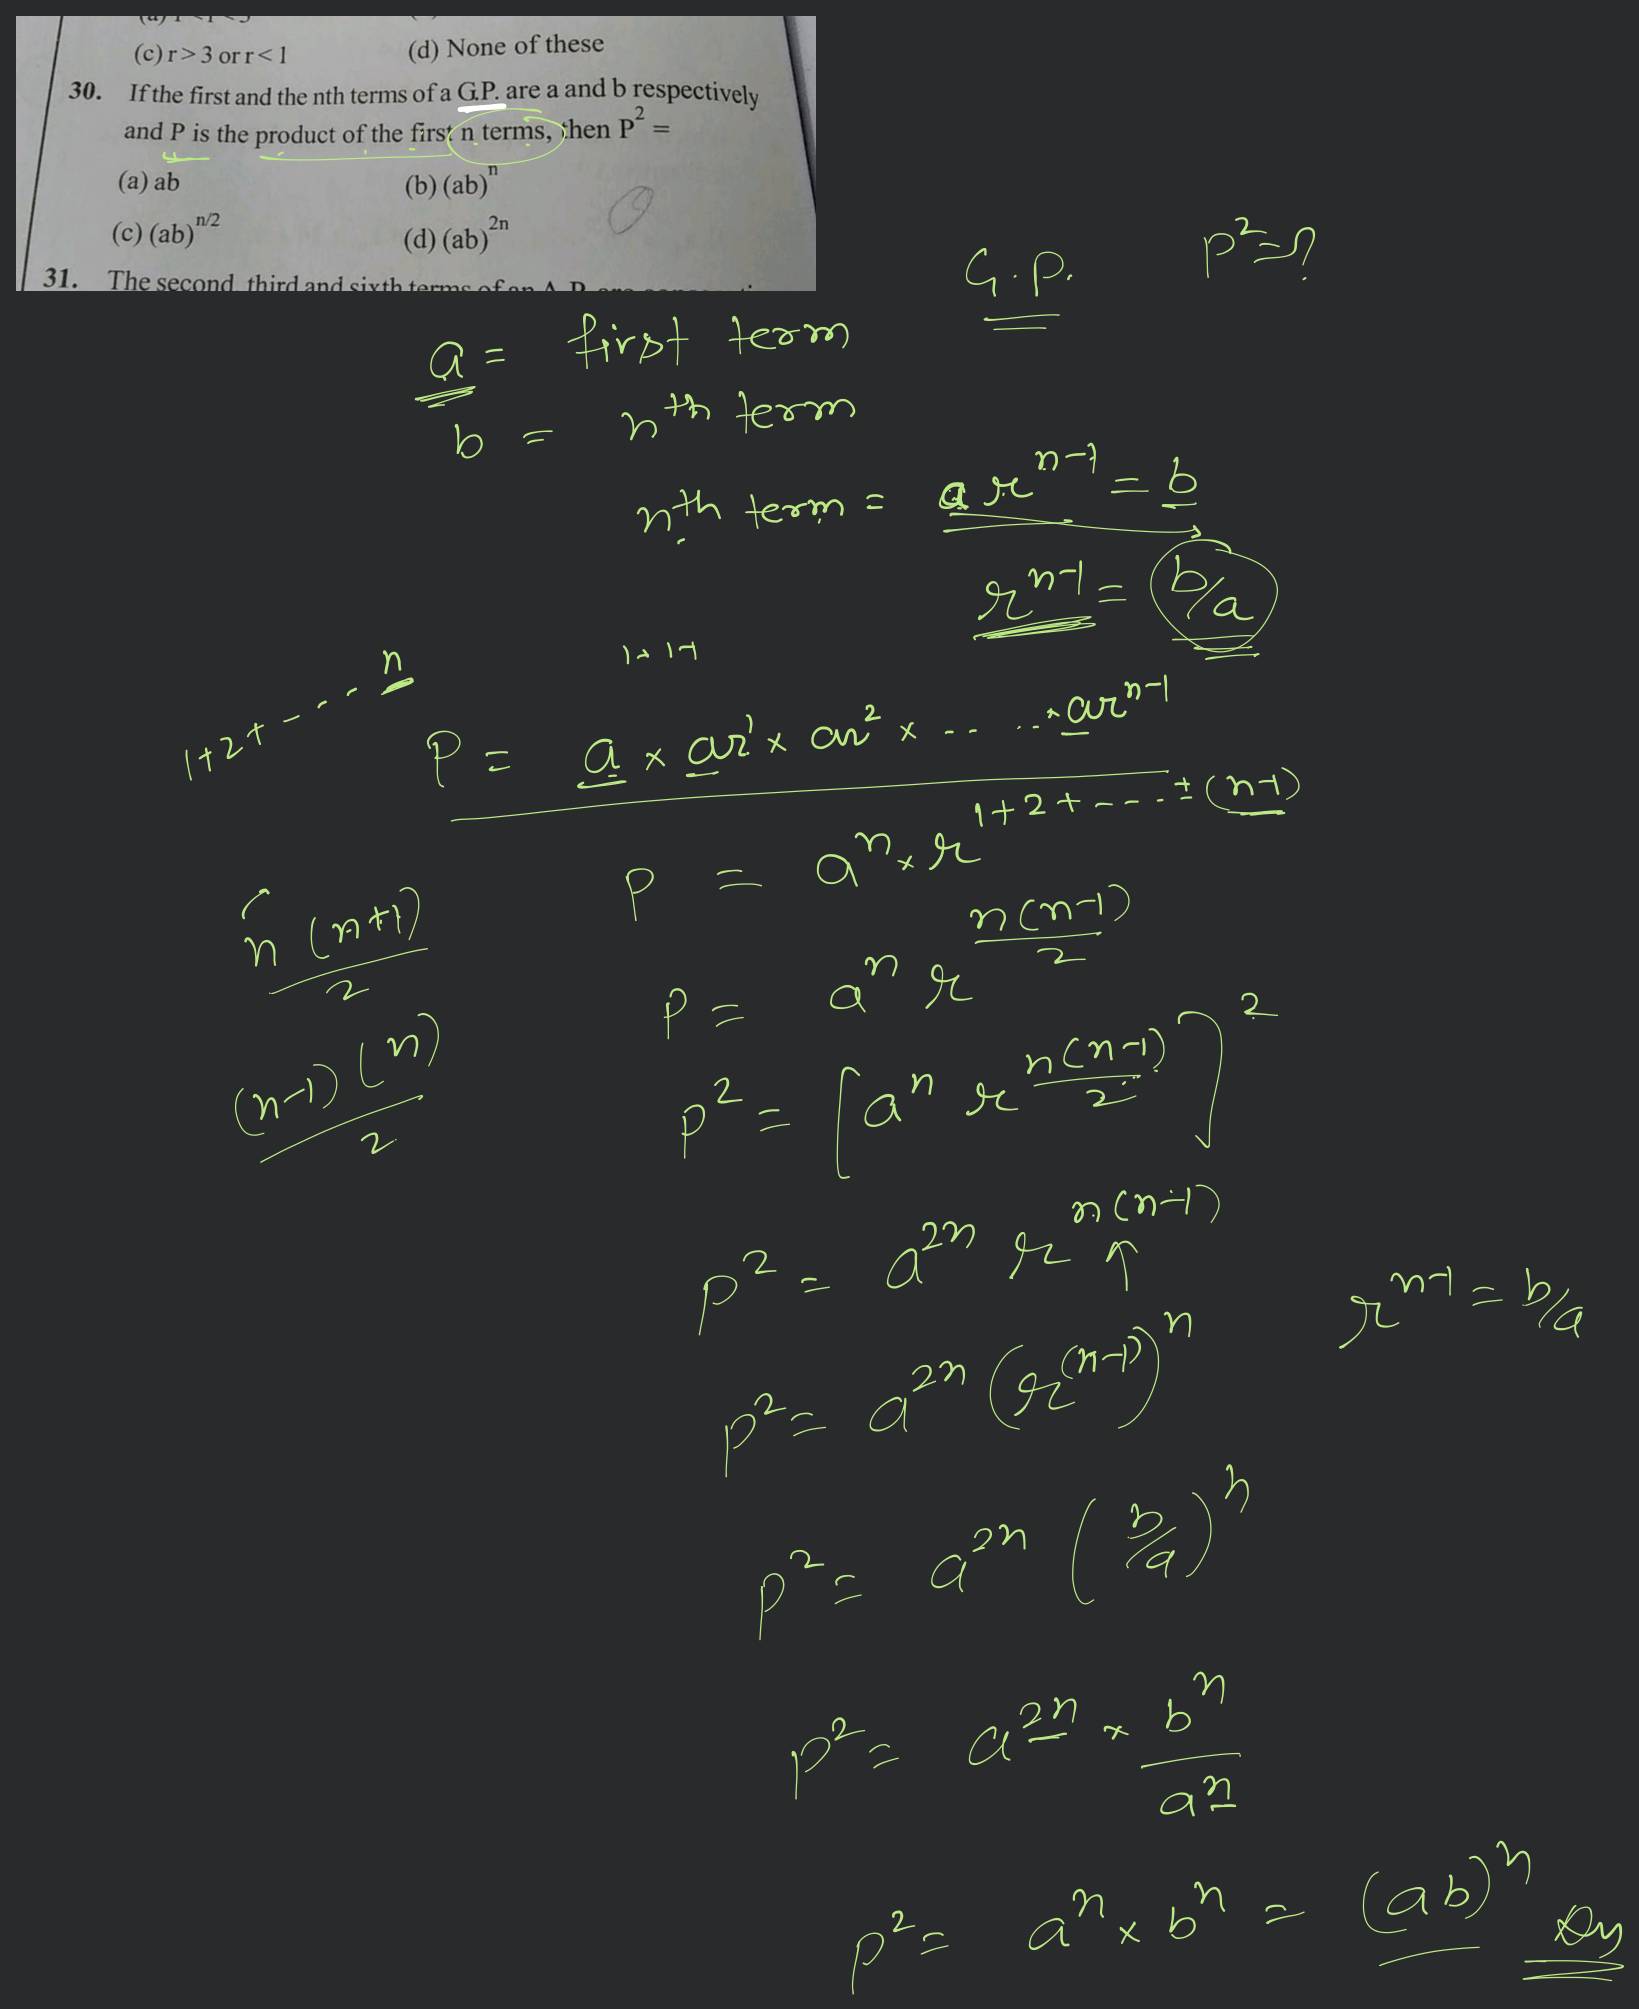 (c) r > 3 or r < 1 (d) None of these
30. If the first and the nth terms of a G.P. are a and b respectively
and P is the product of the first n terms, then P² =
(a) ab (b) (ab)ⁿ
(c) (ab)^(n/2) (d) (ab)^(2n)
31. The second, third and sixth terms of an A.P. are
G.P. P² = ?
a = first term
b = nth term
nth term = ar^(n-1) = b
r^(n-1) = b/a
1+2+----n
P = a × ar¹ × ar² × ---- × ar^(n-1)
P = aⁿ × r^(1+2+----+(n-1))
n(n+1)/2
P = aⁿ r^(n(n-1)/2)
(n-1)(n)/2
P² = [aⁿ r^(n(n-1)/2)]²
P² = a^(2n) r^(n(n-1))
r^(n-1) = b/a
P² = a^(2n) (r^(n-1))ⁿ
P² = a^(2n) (b/a)ⁿ
P² = a^(2n) × bⁿ/aⁿ
P² = aⁿ × bⁿ = (ab)ⁿ